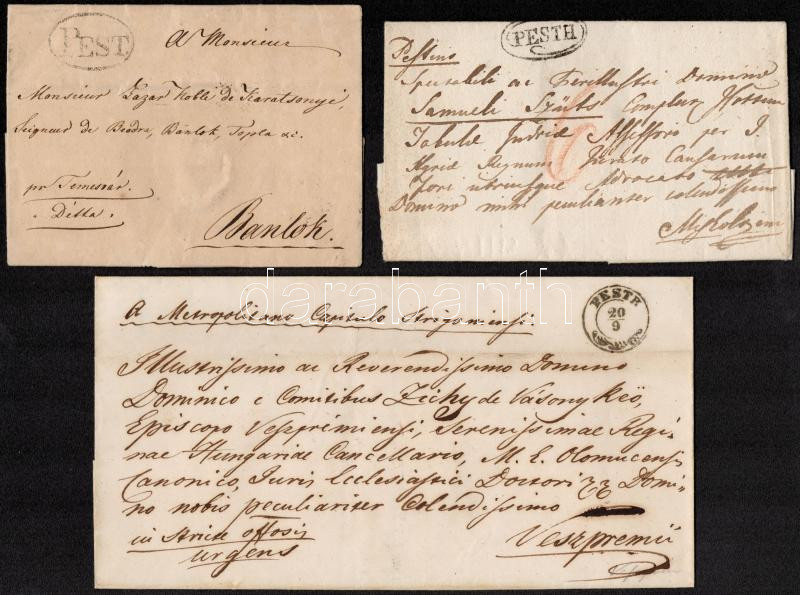 PEST.
A Monsieur
Monsieur Lazar Noble de Karatsonyi,
Seigneur de Beodra, Bánlok, Topla &c.
pr Temesvár.
Détta.
Banlok.
PESTH
Pestino
Spectabili ac Domino
Samueli Szűts
Tabulae Judriae Assessori per I.
Regnum Jurato Causarum
Fori utriusque Advocato
Domino mihi peculiariter colendissimo
PESTH
20
9
A Metropolitano Capitulo Strigoniensi.
Illustrissimo ac Reverendissimo Domino
Dominico e Comitibus Zichy de Vásonykeö,
Episcopo Veszprimiensi, Serenissimae Regi-
nae Hungariae Cancellario, M. E. Olomucensi
Canonico, Juris Ecclesiastici Doctori Domi-
no nobis peculiariter Colendissimo
in Stricte offosis
urgens
Veszpremii
darabanth